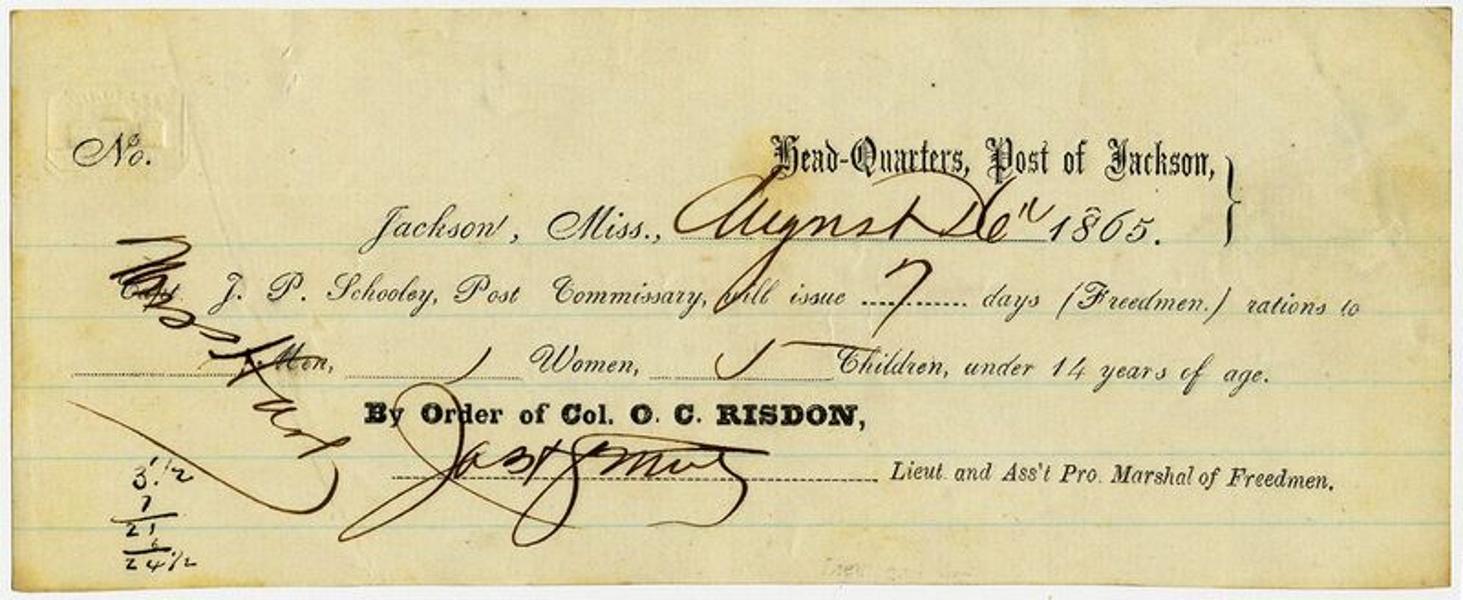 No.
Head-Quarters, Post of Jackson,
Jackson, Miss., August 26th 1865.
Capt. J. P. Schooley, Post Commissary, will issue 7 days (Freedmen.) rations to
Men, 1 Women, 5 Children, under 14 years of age.
By Order of Col. O. C. RISDON,
Lieut. and Ass't Pro. Marshal of Freedmen.
3 1/2
7
21
24 1/2